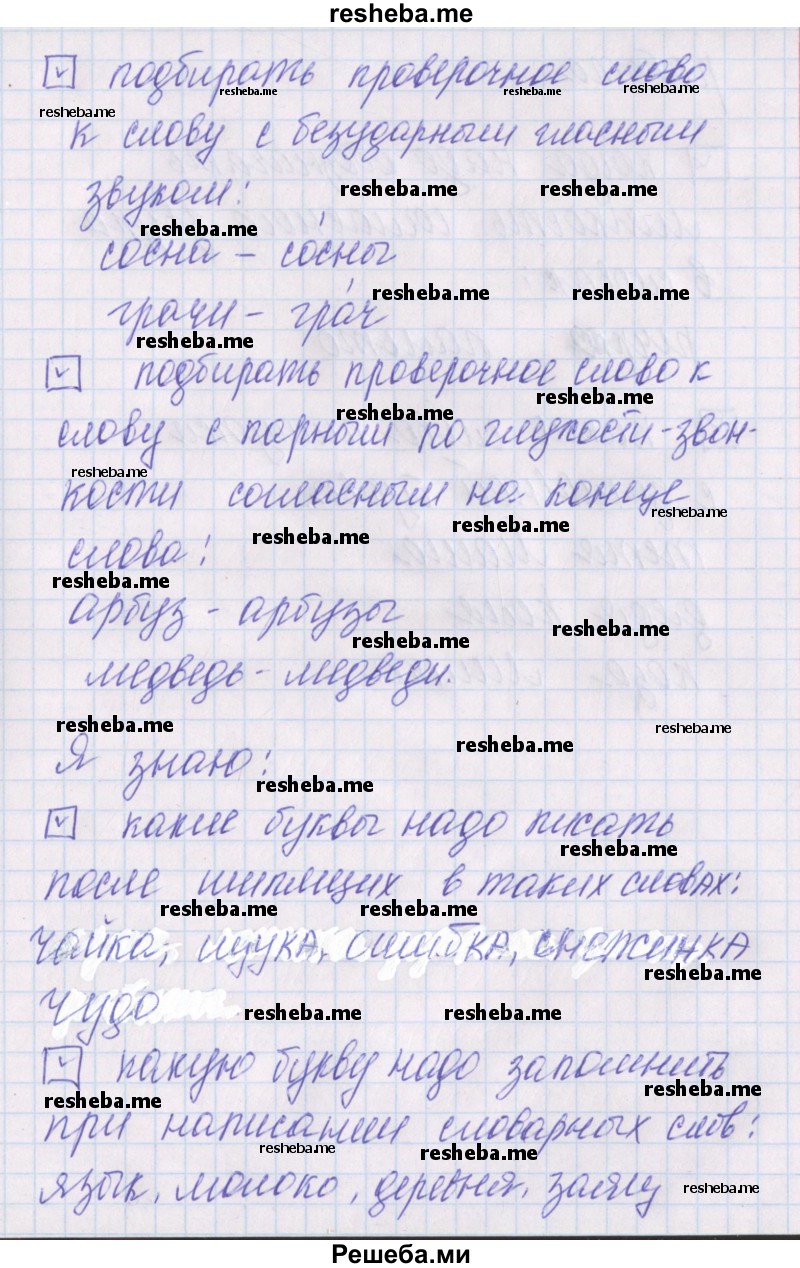 resheba.me
подбирать проверочное слово
к слову с безударным гласным
звуком:
сосна – со́сны
грачи – гра́ч
подбирать проверочное слово к
слову с парным по глухости-звон-
кости согласным на конце
слова:
арбуз - арбузы
медведь - медведи.
Я знаю:
какие буквы надо писать
после шипящих в таких словах:
чайка, щука, ошибка, снежинка
чудо
какую букву надо запомнить
при написании словарных слов:
язык, молоко, деревня,
Решеба.ми